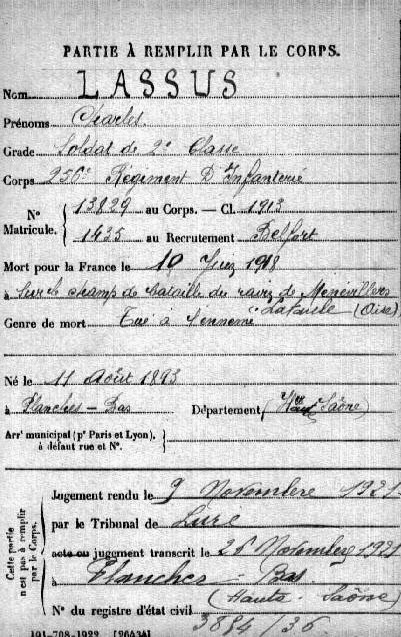 PARTIE À REMPLIR PAR LE CORPS.
Nom LASSUS
Prénoms Charles
Grade Soldat de 2e Classe
Corps 256e Régiment D'Infanterie
N° Matricule. { 13829 au Corps. — Cl. 1913
1435 au Recrutement Belfort
Mort pour la France le 10 Juin 1918
à Sur le champ de bataille du ravin de Menévillers
Lataule (Oise)
Genre de mort Tué à l'ennemi
Né le 11 Août 1893
à Plancher-Bas Département (Hte Saône)
Arrt municipal (pr Paris et Lyon), à défaut rue et N°. {
Cette partie n'est pas à remplir par le Corps.
Jugement rendu le 9 Novembre 1921
par le Tribunal de Lure
acte ou jugement transcrit le 26 Novembre 1921
à Plancher-Bas
(Haute-Saône)
N° du registre d'état civil 3884/36
101-708-1922. [26434]